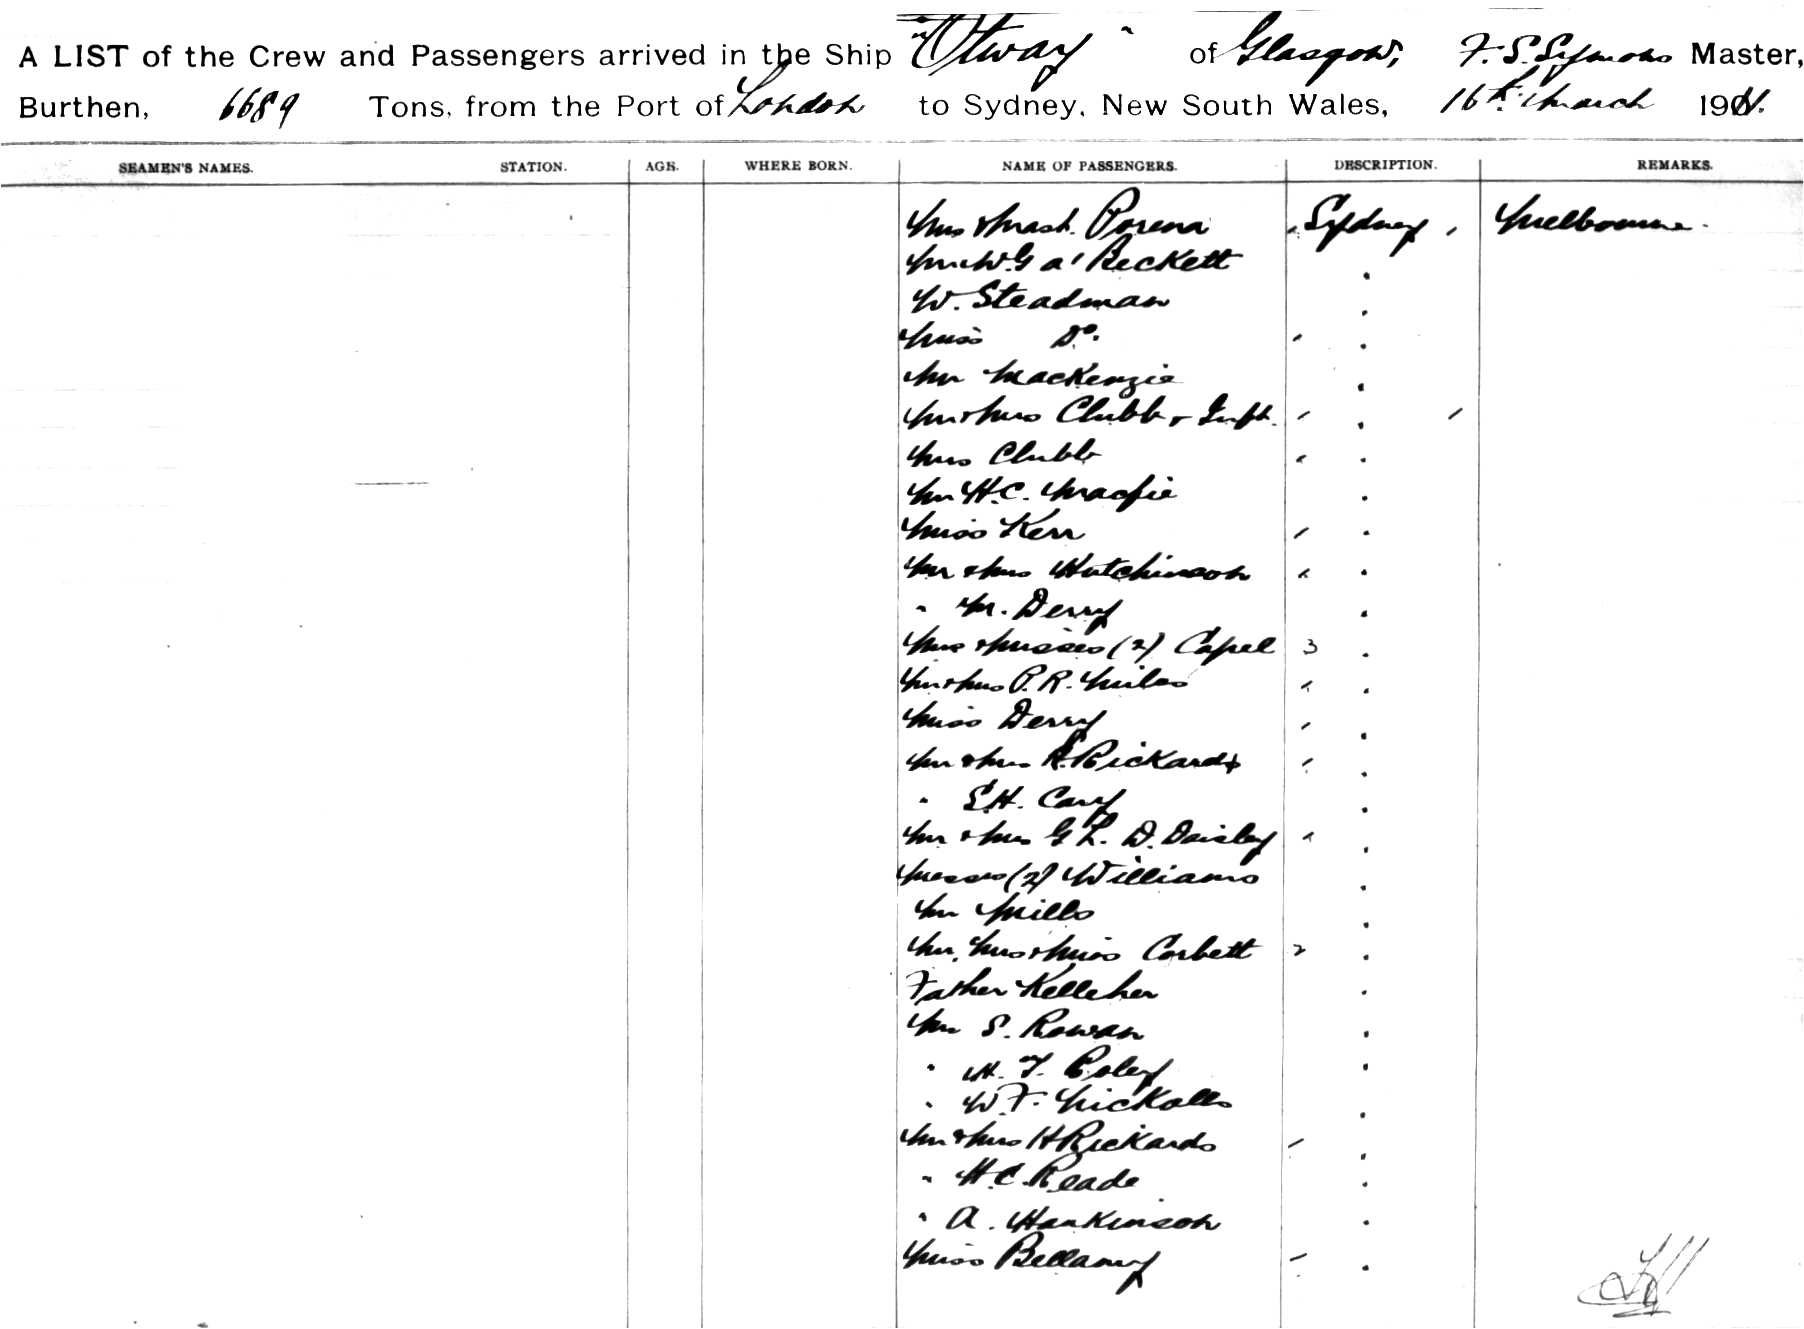 A LIST of the Crew and Passengers arrived in the Ship "Otway" of Glasgow, F. S. Symons Master,
Burthen, 6689 Tons, from the Port of London to Sydney, New South Wales, 16th March 1911.
SEAMEN'S NAMES. STATION. AGE. WHERE BORN. NAME OF PASSENGERS. DESCRIPTION. REMARKS.
Mrs & Mast. Porena Sydney Melbourne
W. G a' Beckett
W. Steadman
Miss Do.
Mr Mackenzie
Mr & Mrs Clubb & Inft.
Mrs Clubb
Mr H. C. Macfie
Miss Kerr
Mr & Mrs Hutchinson
" M. Derry
Mrs & Misses (2) Capel 3
Mr & Mrs P. R. Miles
Miss Derry
Mr & Mrs Rickards
" S. H. Cary
Mr & Mrs G L. D. Daisley
Messrs (2) Williams
Mr Mills
Mr, Mrs & Miss Corbett 2
Father Kelleher
Mr S. Rowan
" H. T. Coley
" W. F. Nickolls
Mr & Mrs H Rickards
" H. C. Reade
" A. Hankinson
Miss Bellamy